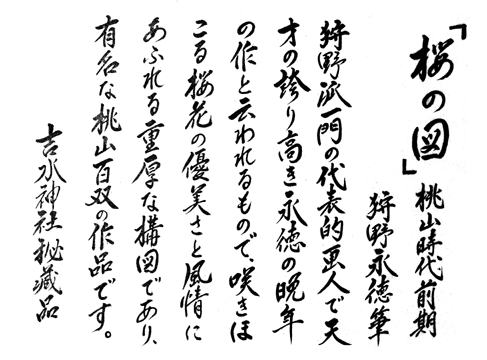 「桜の図」桃山時代前期
狩野永徳筆
狩野派一門の代表的画人で天
才の誇り高き永徳の晩年
の作と云われるもので、咲きほ
こる桜花の優美さと風情に
あふれる重厚な構図であり、
有名な桃山百双の作品です。
吉水神社秘蔵品